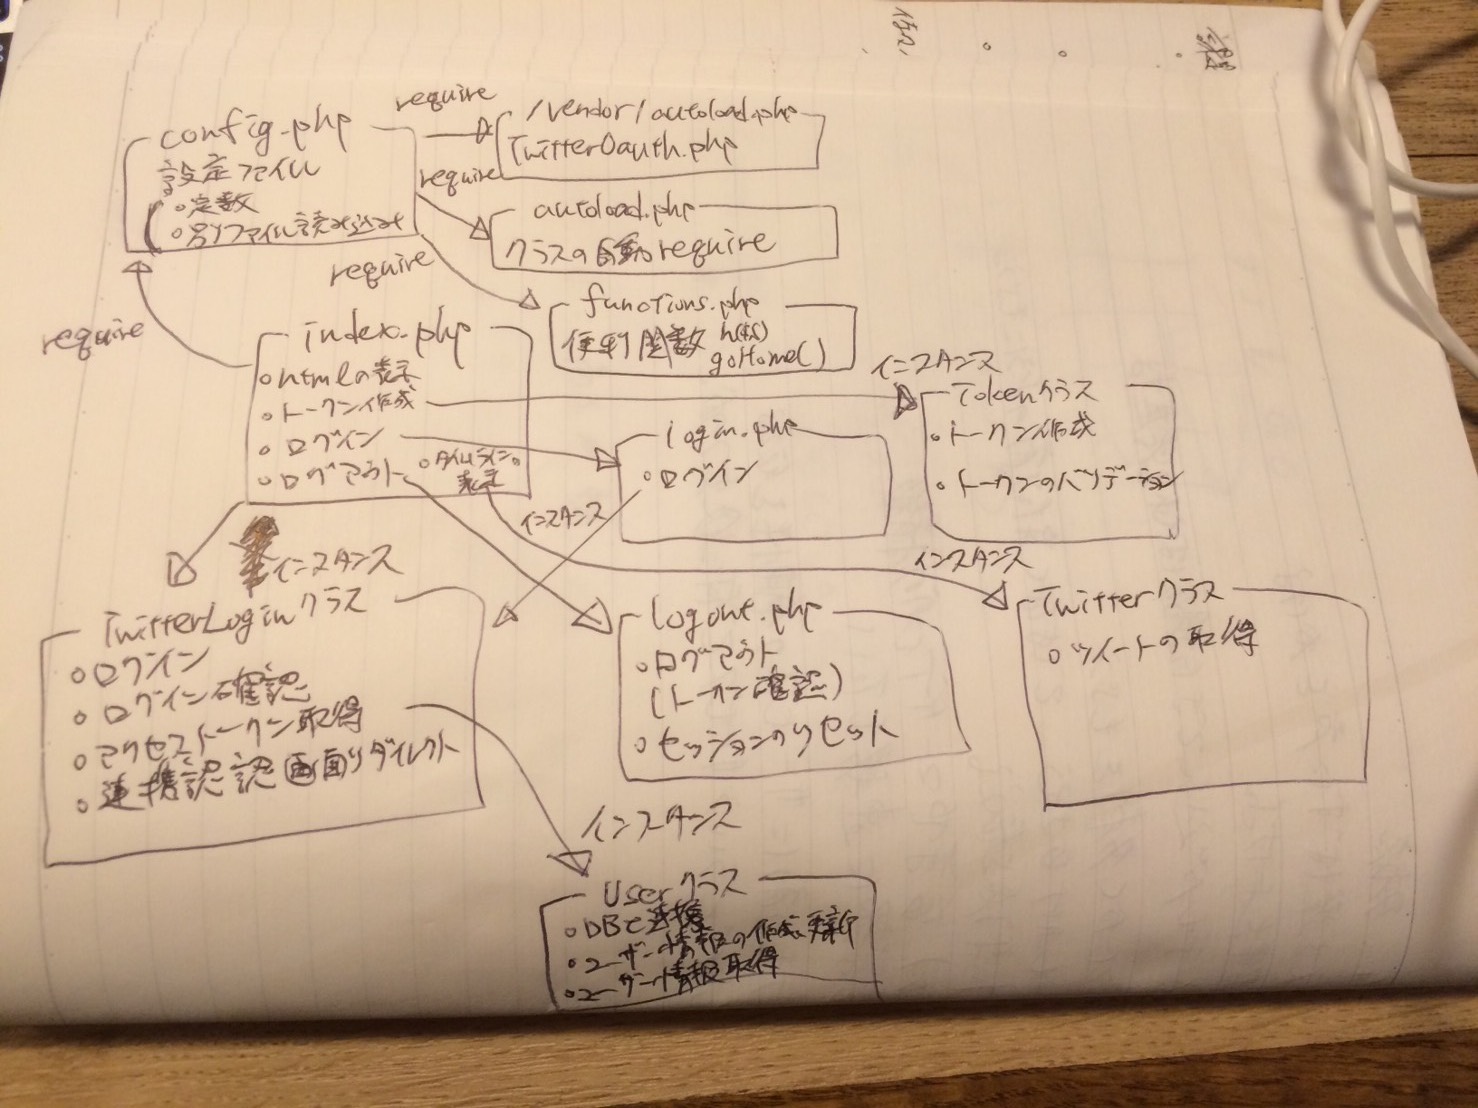 require
config.php
設定ファイル
○定数
○別ファイル読み込み
/vendor/autoload.php
TwitterOauth.php
require
autoload.php
クラスの自動require
require
functions.php
便利関数 h($s)
goHome()
require
index.php
○htmlの表示
○トークン作成
○ログイン
○ログアウト
○タイムラインの
表示
インスタンス
Tokenクラス
○トークン作成
○トークンのバリデーション
login.php
○ログイン
インスタンス
インスタンス
インスタンス
TwitterLoginクラス
○ログイン
○ログイン確認
○アクセストークン取得
○連携認認画面リダイレクト
logout.php
○ログアウト
(トークン確認)
○セッションのリセット
Twitterクラス
○ツイートの取得
インスタンス
Userクラス
○DBと連携
○ユーザー情報の作成、更新
○ユーザー情報取得